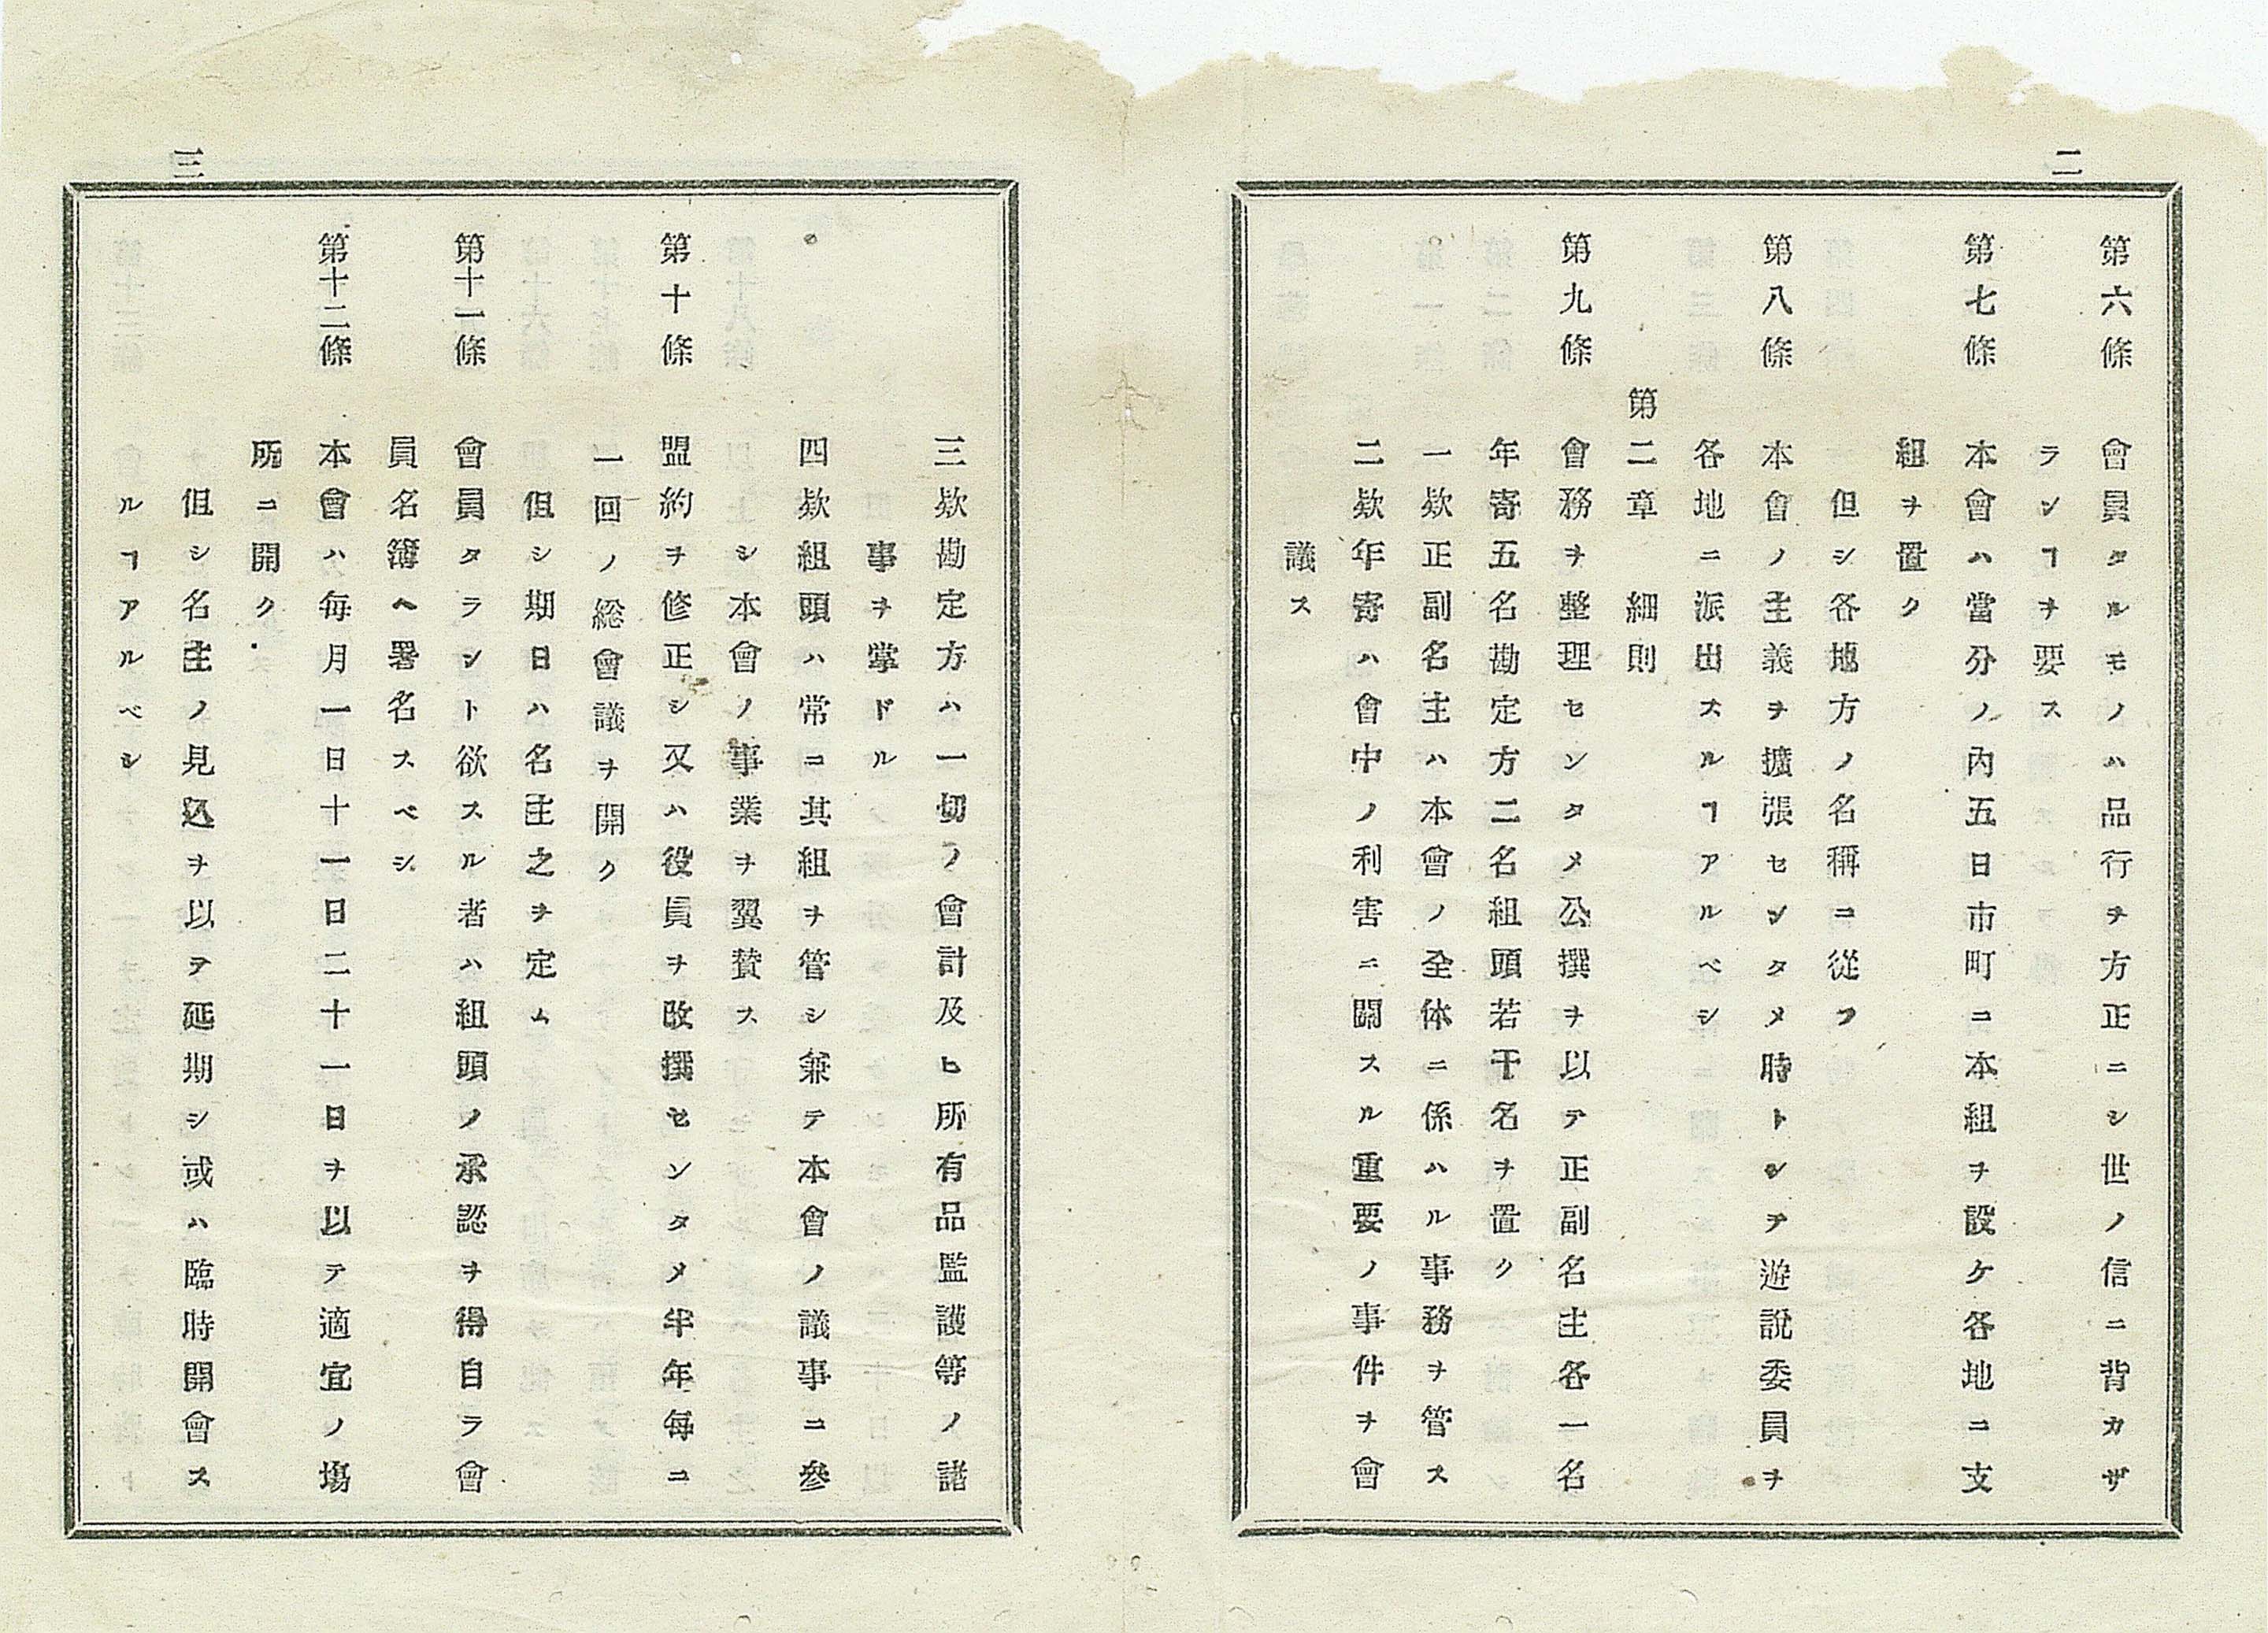 二
第六條 會員タルモノハ品行ヲ方正ニシ世ノ信ニ背カザ
ランヿヲ要ス
第七條 本會ハ當分ノ内五日市町ニ本組ヲ設ケ各地ニ支
組ヲ置ク
但シ各地方ノ名稱ニ從フ
第八條 本會ノ主義ヲ擴張センタメ時トシテ遊説委員ヲ
各地ニ派出スルヿアルベシ
第二章 細則
第九條 會務ヲ整理センタメ公撰ヲ以テ正副名主各一名
年寄五名勘定方二名組頭若干名ヲ置ク
一欵正副名主ハ本會ノ全体ニ係ハル事務ヲ管ス
二欵年寄ハ會中ノ利害ニ關スル重要ノ事件ヲ會
議ス
三
三欵勘定方ハ一切ノ會計及ヒ所有品監護等ノ諸
事ヲ掌ドル
四欵組頭ハ常ニ其組ヲ管シ兼テ本會ノ議事ニ參
シ本會ノ事業ヲ翼賛ス
第十條 盟約ヲ修正シ又ハ役員ヲ改撰センタメ半年毎ニ
一回ノ総會議ヲ開ク
但シ期日ハ名主之ヲ定ム
第十一條 會員タラント欲スル者ハ組頭ノ承認ヲ得自ラ會
員名簿ヘ署名スベシ
第十二條 本會ハ毎月一日十一日二十一日ヲ以テ適宜ノ塲
所ニ開ク
但シ名主ノ見込ヲ以テ延期シ或ハ臨時開會ス
ルヿアルベシ